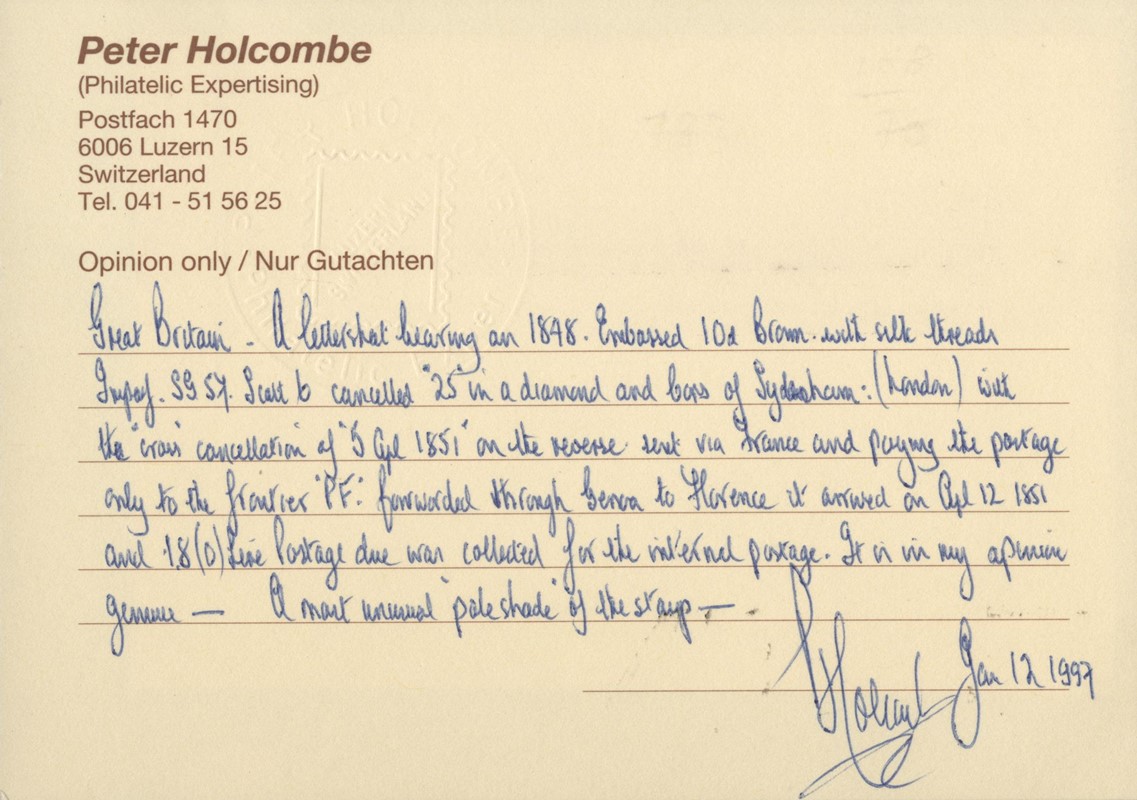 Peter Holcombe
(Philatelic Expertising)
Postfach 1470
6006 Luzern 15
Switzerland
Tel. 041 - 51 56 25
Opinion only / Nur Gutachten
Great Britain - A lettersheet bearing an 1848. Embossed 10d Brown. with silk threads
Imperf. SG 57. Scott 6 cancelled "25" in a diamond and bars of Sydenham: (London) with
the "cross" cancellation of "5 Apl 1851" on the reverse. sent via France and paying the postage
only to the frontier "P.F." forwarded through Genoa to Florence it arrived on Apl 12 1851
and 1.8(0) Lire Postage due was collected for the internal postage. It is in my opinion
genuine — A most unusual "pale shade" of the stamp —
P Holcombe Jan 12 1997